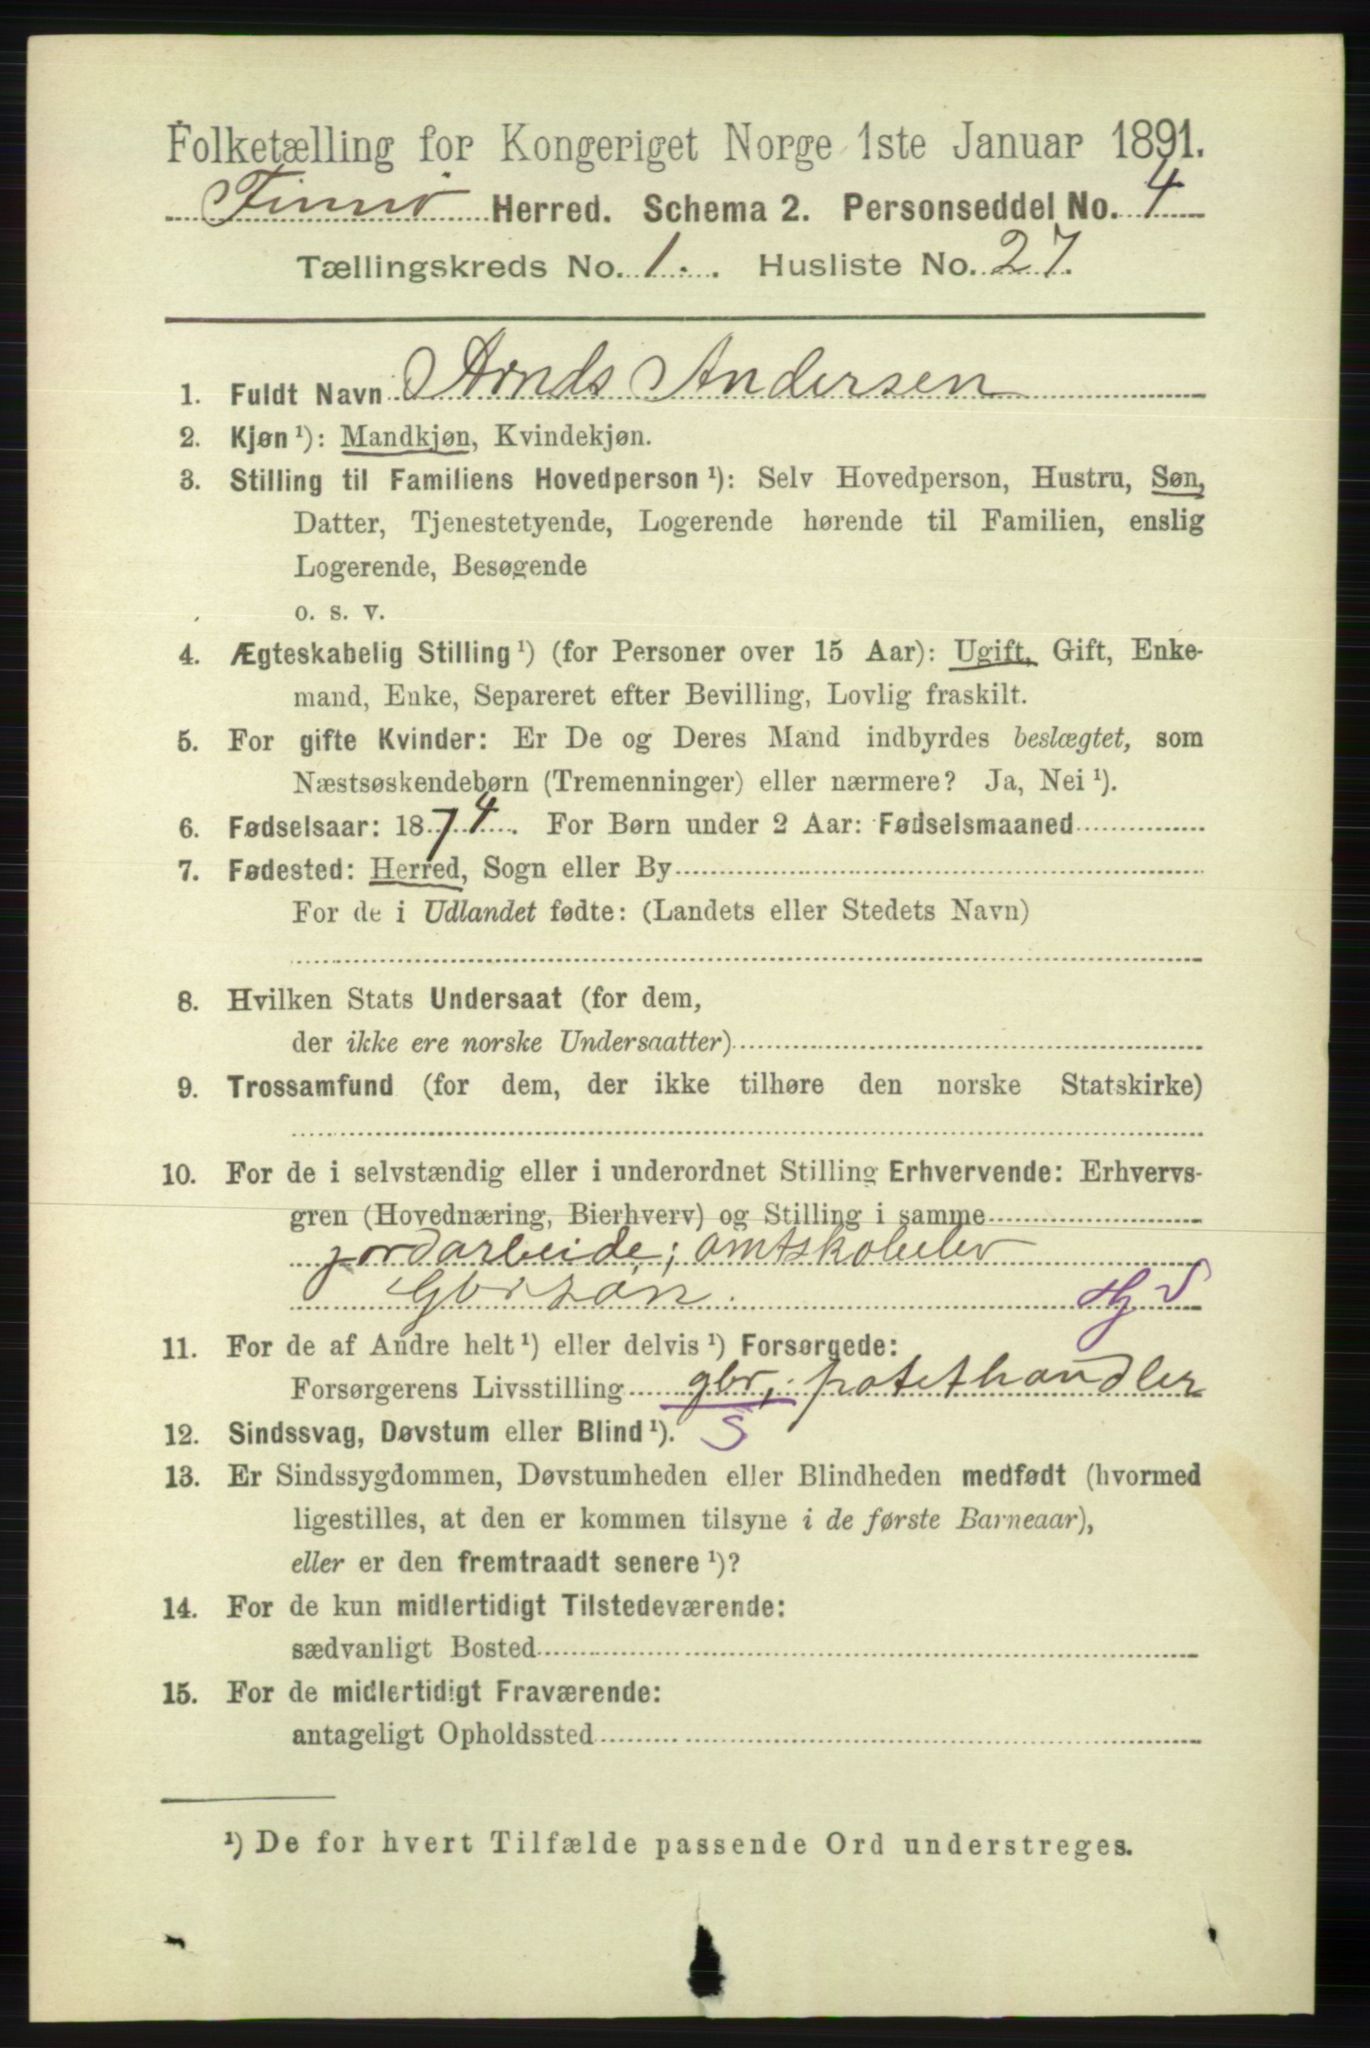 Folketælling for Kongeriget Norge 1ste Januar 1891.
Finnø Herred. Schema 2. Personseddel No. 4
Tællingskreds No. 1. Husliste No. 27.
1. Fuldt Navn Arnds Andersen
2. Kjøn ¹): Mandkjøn, Kvindekjøn.
3. Stilling til Familiens Hovedperson ¹): Selv Hovedperson, Hustru, Søn,
Datter, Tjenestetyende, Logerende hørende til Familien, enslig
Logerende, Besøgende
o. s. v.
4. Ægteskabelig Stilling ¹) (for Personer over 15 Aar): Ugift, Gift, Enke-
mand, Enke, Separeret efter Bevilling, Lovlig fraskilt.
5. For gifte Kvinder: Er De og Deres Mand indbyrdes beslægtet, som
Næstsøskendebørn (Tremenninger) eller nærmere? Ja, Nei ¹).
6. Fødselsaar: 1874. For Børn under 2 Aar: Fødselsmaaned
7. Fødested: Herred, Sogn eller By
For de i Udlandet fødte: (Landets eller Stedets Navn)
8. Hvilken Stats Undersaat (for dem,
der ikke ere norske Undersaatter)
9. Trossamfund (for dem, der ikke tilhøre den norske Statskirke)
10. For de i selvstændig eller i underordnet Stilling Erhvervende: Erhvervs-
gren (Hovednæring, Bierhverv) og Stilling i samme
jordarbeide; amtskolelev
Gbrsøn.
11. For de af Andre helt ¹) eller delvis ¹) Forsørgede:
Forsørgerens Livsstilling gbr, potethandler
S
12. Sindssvag, Døvstum eller Blind ¹).
13. Er Sindssygdommen, Døvstumheden eller Blindheden medfødt (hvormed
ligestilles, at den er kommen tilsyne i de første Barneaar),
eller er den fremtraadt senere ¹)?
14. For de kun midlertidigt Tilstedeværende:
sædvanligt Bosted
15. For de midlertidigt Fraværende:
antageligt Opholdssted
¹) De for hvert Tilfælde passende Ord understreges.